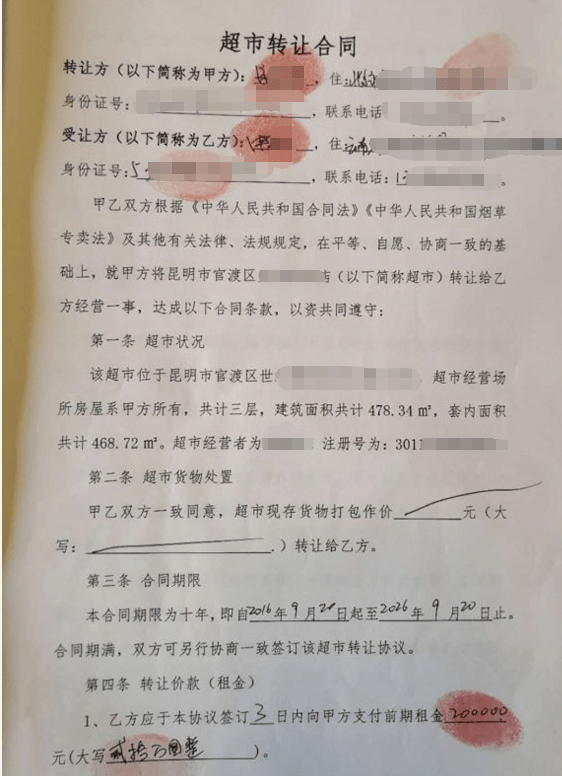 超市转让合同
转让方（以下简称为甲方）：，住：
身份证号：，联系电话。
受让方（以下简称为乙方）：，住：
身份证号：5，联系电话：1。
甲乙双方根据《中华人民共和国合同法》《中华人民共和国烟草
专卖法》及其他有关法律、法规规定，在平等、自愿、协商一致的基
础上，就甲方将昆明市官渡区（以下简称超市）转让给乙
方经营一事，达成以下合同条款，以资共同遵守：
第一条 超市状况
该超市位于昆明市官渡区世 超市经营场
所房屋系甲方所有，共计三层，建筑面积共计 478.34 ㎡，套内面积
共计 468.72 ㎡。超市经营者为 注册号为：3011
第二条 超市货物处置
甲乙双方一致同意，超市现存货物打包作价元（大
写：.）转让给乙方。
第三条 合同期限
本合同期限为十年，即自2016年9月20日起至2026年9月20日止。
合同期满，双方可另行协商一致签订该超市转让协议。
第四条 转让价款（租金）
1、乙方应于本协议签订3日内向甲方支付前期租金200000
元(大写贰拾万圆整)。